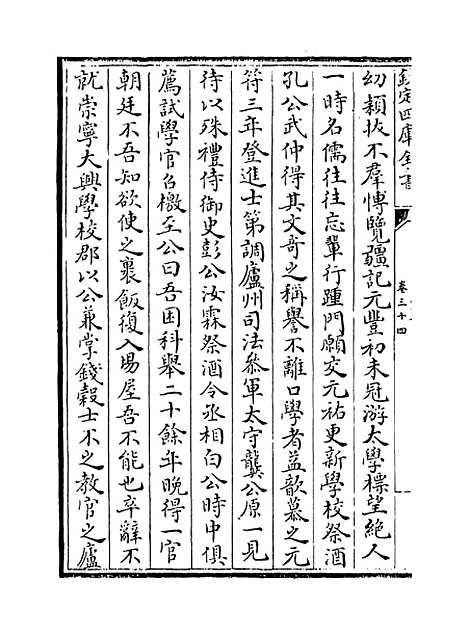 欽定四庫全書
卷三十四
幼穎拔不羣愽覽疆記元豐初未冠游太學標望絕人
一時名儒往往忘輩行踵門願交元祐更新學校祭酒
孔公武仲得其文奇之稱譽不離口學者益歆慕之元
符三年登進士第調廬州司法叅軍太守龔公原一見
待以殊禮侍御史彭公汝霖祭酒今丞相白公時中俱
薦試學官召檄至公曰吾困科舉二十餘年晚得一官
朝廷不吾知欲使之裹飯復入場屋吾不能也卒辭不
就崇寧大興學校郡以公兼掌錢穀士不之教官之廬